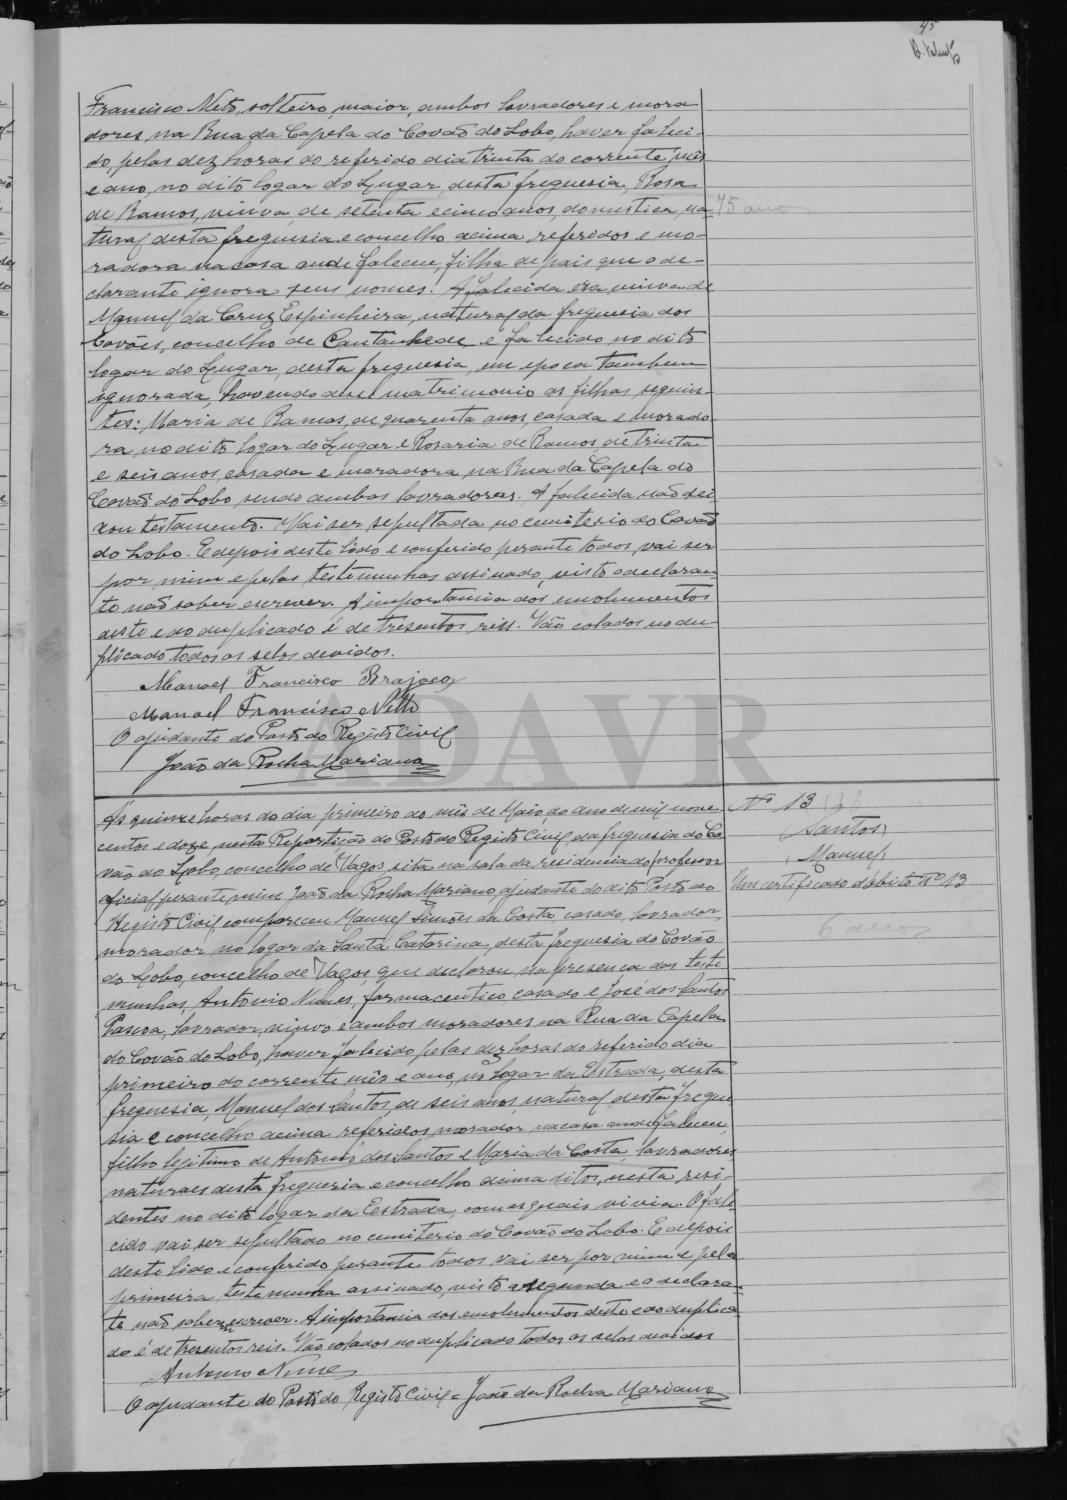 45
Francisco Neto, solteiro, maior, ambos lavradores e mora
dores na Rua da Capela do Covão do Lobo, haver faleci-
do, pelas dez horas do referido dia trinta do corrente mês
e ano, no dito logar do Lugar desta freguesia Rosa
de Ramos, viuva, de setenta e cinco anos, domestica, na
75 anos
tural desta freguesia e concelho acima referidos e mo-
radora na casa onde faleceu, filha de pais que o de-
clarante ignora seus nomes. A falecida era viuva de
Manuel da Cruz Espinheira, natural da freguesia dos
Covões, concelho de Cantanhede e falecido no dito
logar do Lugar, desta freguesia, em epoca tambem
ignorada, havendo desse matrimonio as filhas seguin-
tes: Maria de Ramos, de quarenta anos, casada e morado
ra no dito logar do Lugar e Rosaria de Ramos, de trinta
e seis anos, casada e moradora na Rua da Capela do
Covão do Lobo, sendo ambas lavradoras. A falecida não dei
xou testamento. Vai ser sepultada no cemiterio do Covão
do Lobo. E depois deste lido e conferido perante todos, vai ser
por mim e pelas testemunhas assinado, visto o declaran
te não saber escrever. A importancia dos emolumentos
deste e do duplicado é de tresentos reis. Vão colados no du-
plicado todos os selos devidos.
Manoel Francisco
Manoel Francisco Netto
O ajudante do Posto do Registo Civil
João da Rocha Mariano
ADAVR
Ás quinze horas do dia primeiro do mês de Maio, do ano de mil nove
centos e doze, nesta Repartição do Posto do Registo Civil da freguesia do Co
vão do Lobo, concelho de Vagos, sita na sala da residencia do professor
oficial perante mim João da Rocha Mariano, ajudante do dito Posto do
Registo Civil compareceu Manuel Simões da Costa, casado, lavrador,
morador no logar da Santa Catarina, desta freguesia do Covão
do Lobo, concelho de Vagos, que declarou na presença das teste
munhas, Antonio Nunes, farmaceutico casado e José dos Santos
Pascoa, lavrador, viuvo e ambos moradores na Rua da Capela
do Covão do Lobo, haver falecido pelas dez horas do referido dia
primeiro do corrente mês e ano, no logar da Estrada, desta
freguesia, Manuel dos Santos, de seis anos, natural desta fregue
sia e concelho acima referidos, morador na casa onde faleceu,
filho legitimo de Antonio dos Santos e Maria da Costa, lavradores
naturaes desta freguesia e concelho acima ditos, nesta resi-
dentes no dito logar da Estrada, com os quais vivia. O fale-
cido vai ser sepultado no cemiterio do Covão do Lobo. E depois
deste lido e conferido perante todos vai ser por mim e pela
primeira testemunha assinado, visto a segunda e o declaran-
te não saber escrever. A importancia dos emolumentos deste e do duplica
do é de tresentos reis. Vão colados no duplicado todos os selos devidos
Antonio Nunes
O ajudante do Posto do Registo Civil = João da Rocha Mariano
Nº 13
Santos,
Manuel
Um certificado d'obito nº 13
6 anos